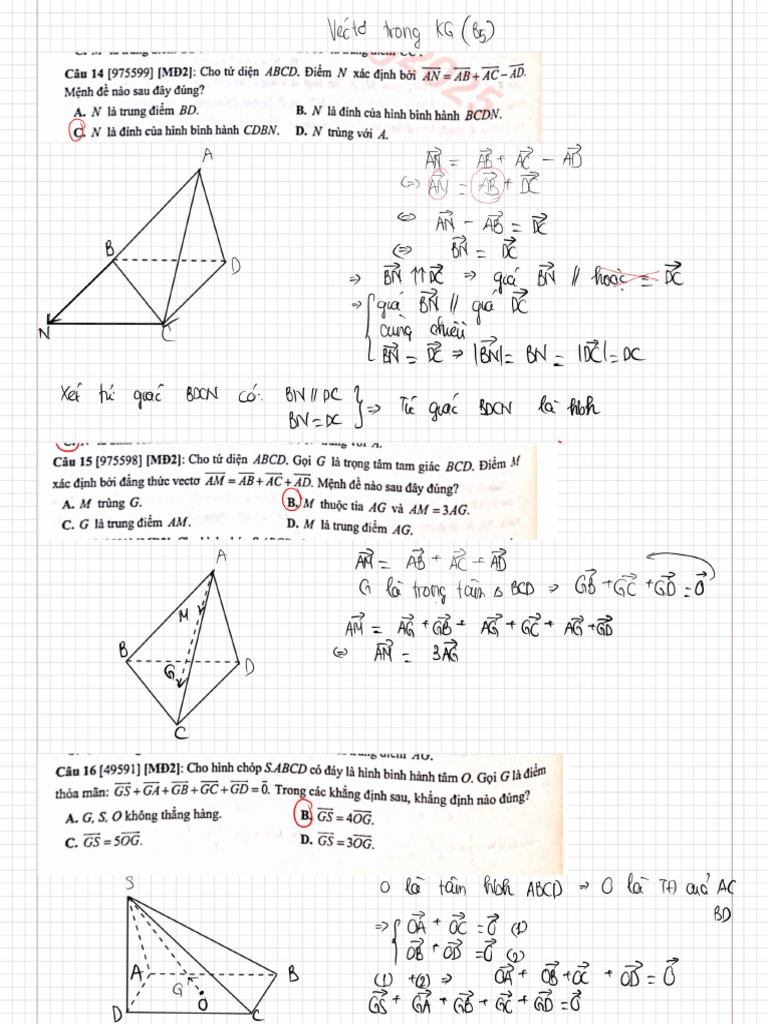 Vectơ trong KG (B5)
Câu 14 [975599] [MĐ2]: Cho tứ diện ABCD. Điểm N xác định bởi \overrightarrow{AN} = \overrightarrow{AB} + \overrightarrow{AC} − \overrightarrow{AD}.
Mệnh đề nào sau đây đúng?
A. N là trung điểm BD. B. N là đỉnh của hình bình hành BCDN.
C. N là đỉnh của hình bình hành CDBN. D. N trùng với A.
A
B
D
N
C
\overrightarrow{AN} = \overrightarrow{AB} + \overrightarrow{AC} − \overrightarrow{AD}
⇔ \overrightarrow{AN} = \overrightarrow{AB} + \overrightarrow{DC}
⇔ \overrightarrow{AN} − \overrightarrow{AB} = \overrightarrow{DC}
⇔ \overrightarrow{BN} = \overrightarrow{DC}
⇒ \overrightarrow{BN} ⇈ \overrightarrow{DC} ⇒ giá \overrightarrow{BN} // hoặc ≡ \overrightarrow{DC}
⇒ { giá \overrightarrow{BN} // giá \overrightarrow{DC}
cùng chiều
\overrightarrow{BN} = \overrightarrow{DC} ⇒ |\overrightarrow{BN}| = BN = |\overrightarrow{DC}| = DC
Xét tứ giác BDCN có: BN // DC
BN = DC } ⇒ Tứ giác BDCN là hbh
Câu 15 [975598] [MĐ2]: Cho tứ diện ABCD. Gọi G là trọng tâm tam giác BCD. Điểm M
xác định bởi đẳng thức vectơ \overrightarrow{AM} = \overrightarrow{AB} + \overrightarrow{AC} + \overrightarrow{AD}. Mệnh đề nào sau đây đúng?
A. M trùng G. B. M thuộc tia AG và AM = 3AG.
C. G là trung điểm AM. D. M là trung điểm AG.
A
M
B
D
G
C
\overrightarrow{AM} = \overrightarrow{AB} + \overrightarrow{AC} + \overrightarrow{AD}
G là trọng tâm Δ BCD ⇒ \overrightarrow{GB} + \overrightarrow{GC} + \overrightarrow{GD} = \overrightarrow{0}
\overrightarrow{AM} = \overrightarrow{AG} + \overrightarrow{GB} + \overrightarrow{AG} + \overrightarrow{GC} + \overrightarrow{AG} + \overrightarrow{GD}
⇔ \overrightarrow{AM} = 3\overrightarrow{AG}
Câu 16 [49591] [MĐ2]: Cho hình chóp S.ABCD có đáy là hình bình hành tâm O. Gọi G là điểm
thỏa mãn: \overrightarrow{GS} + \overrightarrow{GA} + \overrightarrow{GB} + \overrightarrow{GC} + \overrightarrow{GD} = \overrightarrow{0}. Trong các khẳng định sau, khẳng định nào đúng?
A. G, S, O không thẳng hàng. B. \overrightarrow{GS} = 4\overrightarrow{OG}.
C. \overrightarrow{GS} = 5\overrightarrow{OG}. D. \overrightarrow{GS} = 3\overrightarrow{OG}.
S
A
B
G
O
D
C
O là tâm hbh ABCD ⇒ O là TĐ của AC
BD
⇒ { \overrightarrow{OA} + \overrightarrow{OC} = \overrightarrow{0} (1)
\overrightarrow{OB} + \overrightarrow{OD} = \overrightarrow{0} (2)
(1) + (2) ⇒ \overrightarrow{OA} + \overrightarrow{OB} + \overrightarrow{OC} + \overrightarrow{OD} = \overrightarrow{0}
\overrightarrow{GS} + \overrightarrow{GA} + \overrightarrow{GB} + \overrightarrow{GC} + \overrightarrow{GD} = \overrightarrow{0}